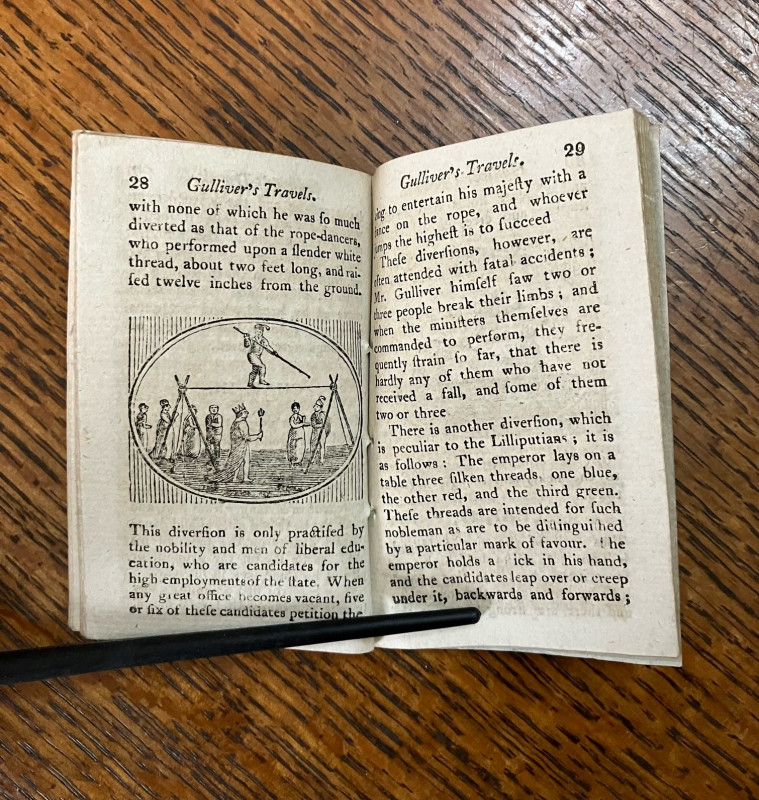 28 Gulliver's Travels.
with none of which he was ſo much
diverted as that of the rope-dancers,
who performed upon a ſlender white
thread, about two feet long, and rai-
ſed twelve inches from the ground.
This diverſion is only practiſed by
the nobility and men of liberal edu-
cation, who are candidates for the
high employments of the ſtate. When
any great office becomes vacant, five
or ſix of theſe candidates petition the
Gulliver's Travels. 29
to entertain his majeſty with a
on the rope, and whoever
the higheſt is to ſucceed
Theſe diverſions, however, are
often attended with fatal accidents;
Mr. Gulliver himſelf ſaw two or
three people break their limbs; and
when the miniſters themſelves are
commanded to perform, they fre-
quently ſtrain ſo far, that there is
hardly any of them who have not
received a fall, and ſome of them
two or three
There is another diverſion, which
is peculiar to the Lilliputians; it is
as follows: The emperor lays on a
table three ſilken threads, one blue,
the other red, and the third green.
Theſe threads are intended for ſuch
nobleman as are to be
by a particular mark of favour.
emperor holds a in his hand,
and the candidates leap over or creep
under it, backwards and forwards;